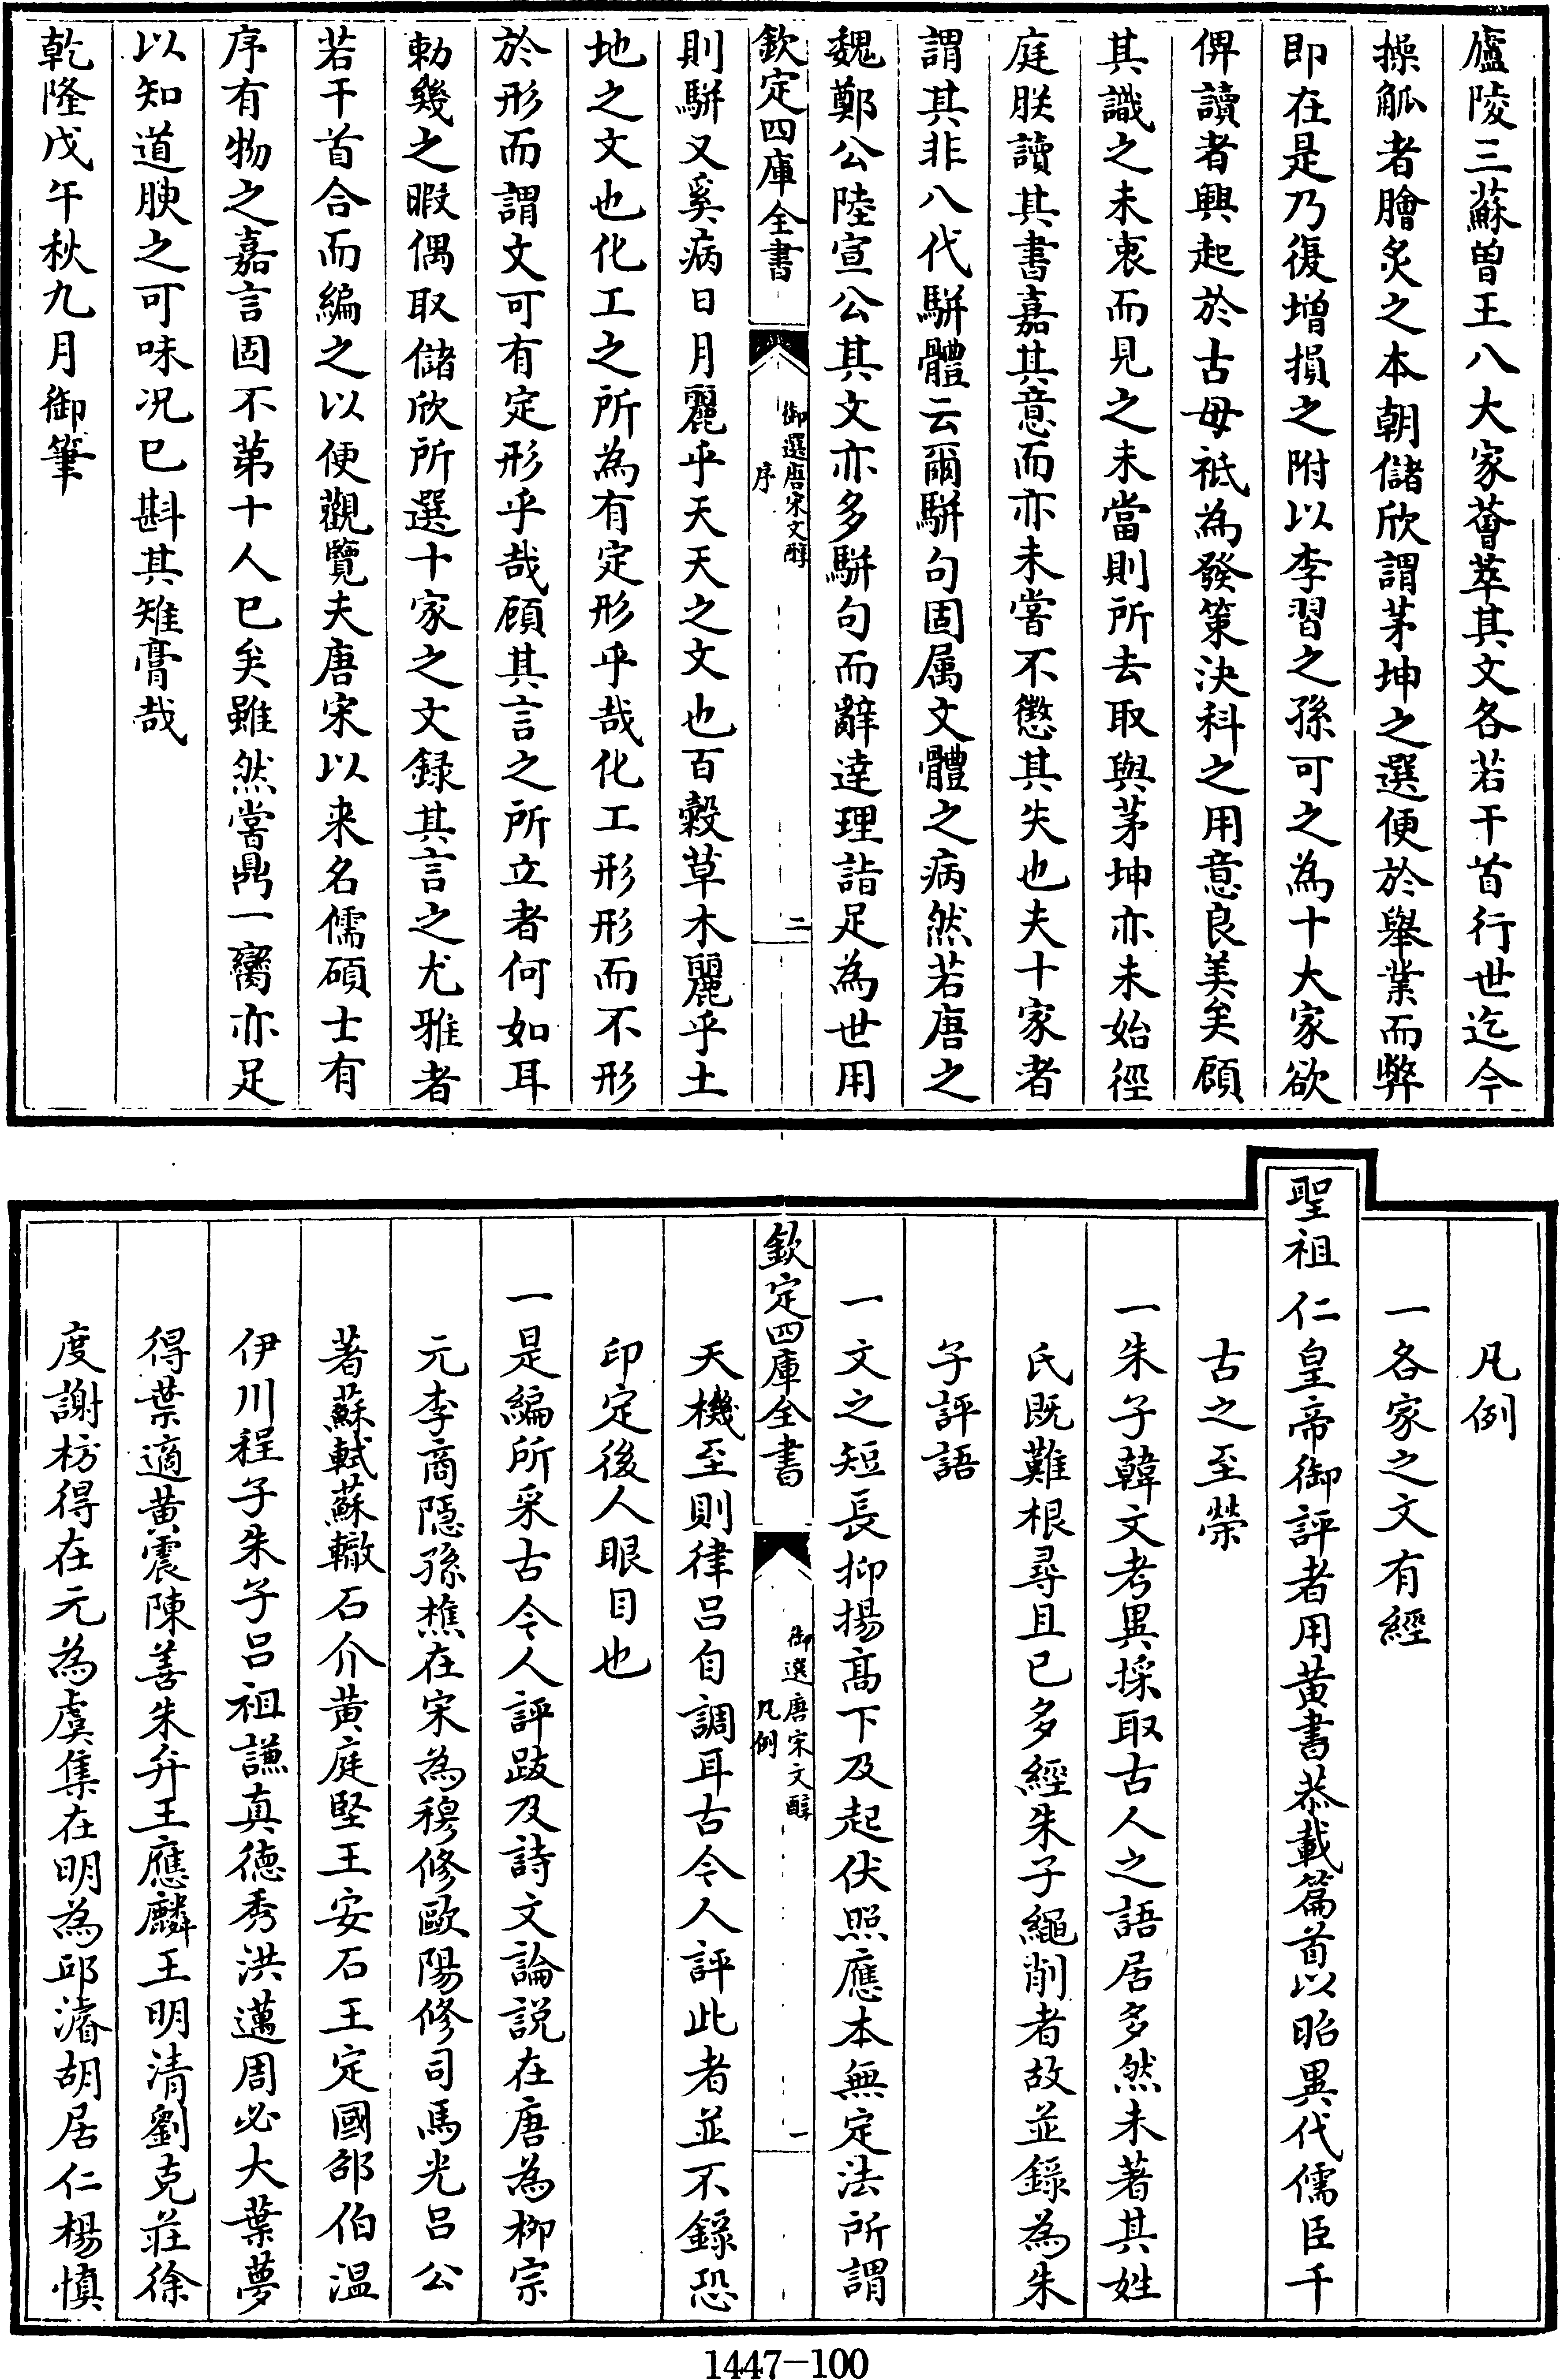 廬陵三蘇曽王八大家薈萃其文各若干首行世迄今
操觚者膾炙之本朝儲欣謂茅坤之選便於舉業而弊
即在是乃復增損之附以李習之孫可之為十大家欲
俾讀者興起於古毋祗為發策決科之用意良美矣顧
其識之未衷而見之未當則所去取與茅坤亦未始徑
庭朕讀其書嘉其意而亦未嘗不懲其失也夫十家者
謂其非八代駢體云爾駢句固属文體之病然若唐之
魏鄭公陸宣公其文亦多駢句而辭達理詣足為世用
欽定四庫全書
御選唐宋文醇
序
二
則駢又奚病日月麗乎天天之文也百穀草木麗乎土
地之文也化工之所為有定形乎哉化工形形而不形
於形而謂文可有定形乎哉顧其言之所立者何如耳
勅幾之暇偶取儲欣所選十家之文録其言之尤雅者
若干首合而編之以便觀覽夫唐宋以来名儒碩士有
序有物之嘉言固不苐十人已矣雖然嘗鼎一臠亦足
以知道腴之可味况已斟其雉膏哉
乾隆戊午秋九月御筆
凡例
一各家之文有經
聖祖仁皇帝御評者用黄書恭載篇首以昭異代儒臣千
古之至榮
一朱子韓文考異採取古人之語居多然未著其姓
氏既難根尋且已多經朱子繩削者故並錄為朱
子評語
一文之短長抑揚高下及起伏照應本無定法所謂
欽定四庫全書
御選唐宋文醇
凡例
一
天機至則律呂自調耳古今人評此者並不錄恐
印定後人眼目也
一是編所采古今人評跋及詩文論説在唐為栁宗
元李商隠孫樵在宋為穆修歐陽修司馬光呂公
著蘇軾蘇轍石介黄庭堅王安石王定國邵伯温
伊川程子朱子呂祖謙真德秀洪邁周必大葉夢
得葉適黄震陳善朱弁王應麟王明清劉克莊徐
度謝枋得在元為虞集在明為邱濬胡居仁楊慎
1447-100